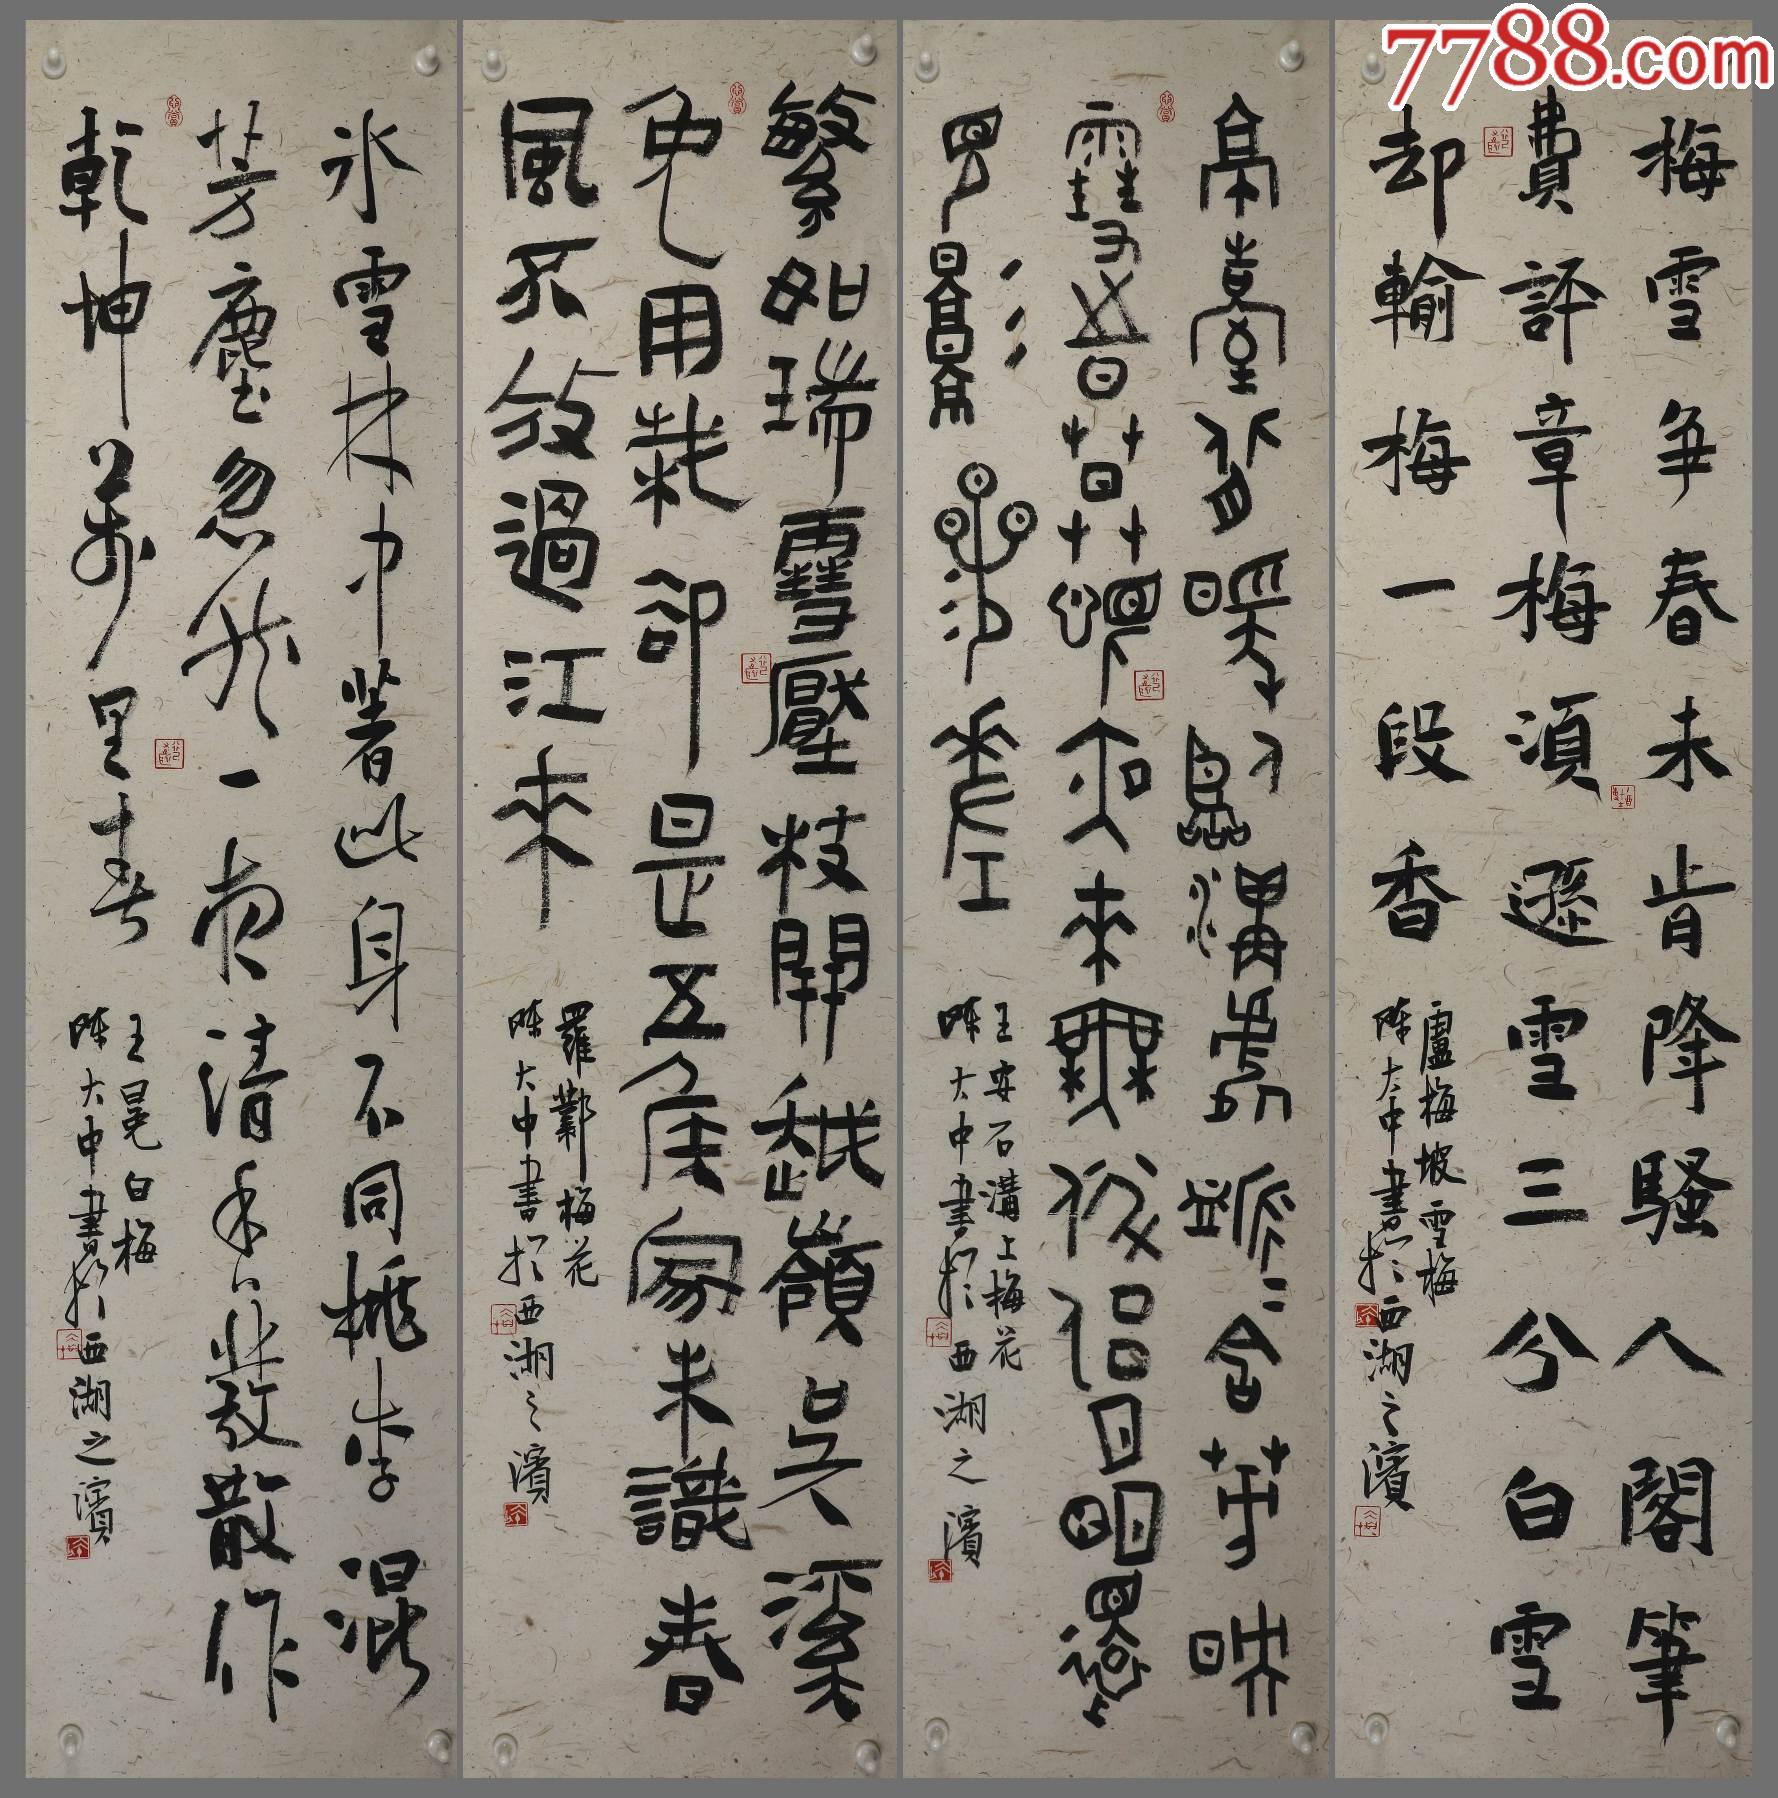 7788.com
梅雪争春未肯降騷人閣筆
費評章梅須遜雪三分白雪
却輸梅一段香
盧梅坡雪梅
陳大中書於西湖之濱
亭臺背暖臨溝處脈=含芳映
雪時莫恨夜來無伴侶月明還
見影參差
王安石溝上梅花
陳大中書於西湖之濱
繁如瑞雪壓枝開越嶺吳溪
免用栽却是五侯家未識春
風不放過江來
羅鄴梅花
陳大中書於西湖之濱
冰雪林中著此身不同桃李混
芳塵忽然一夜清香發散作
乾坤萬里春
王冕白梅
陳大中書於西湖之濱